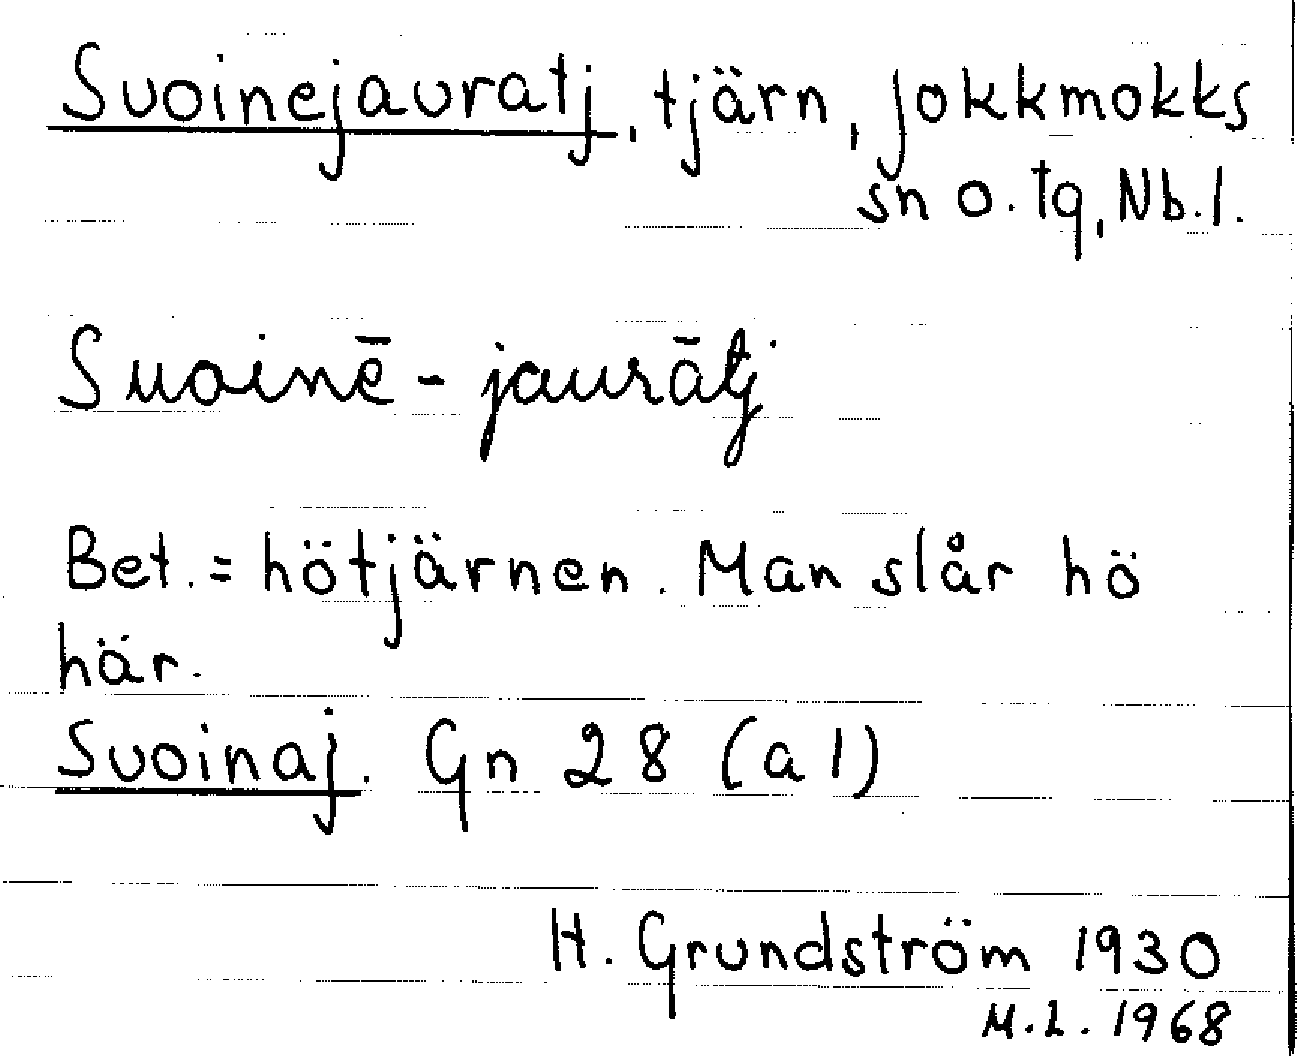 Suoinejauratj, tjärn, Jokkmokks
sn o. tg, Nb.l.
Suoinē-jaurātj
Bet.= hötjärnen. Man slår hö
här.
Suoinaj. Gn 28 (a 1)
H. Grundström 1930
M.L. 1968